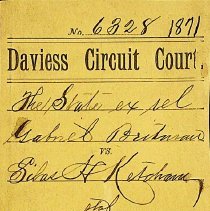 No. 6328 1871
Daviess Circuit Court.
The State ex rel
Gabriel
vs.
Silas H Ketcham
etal